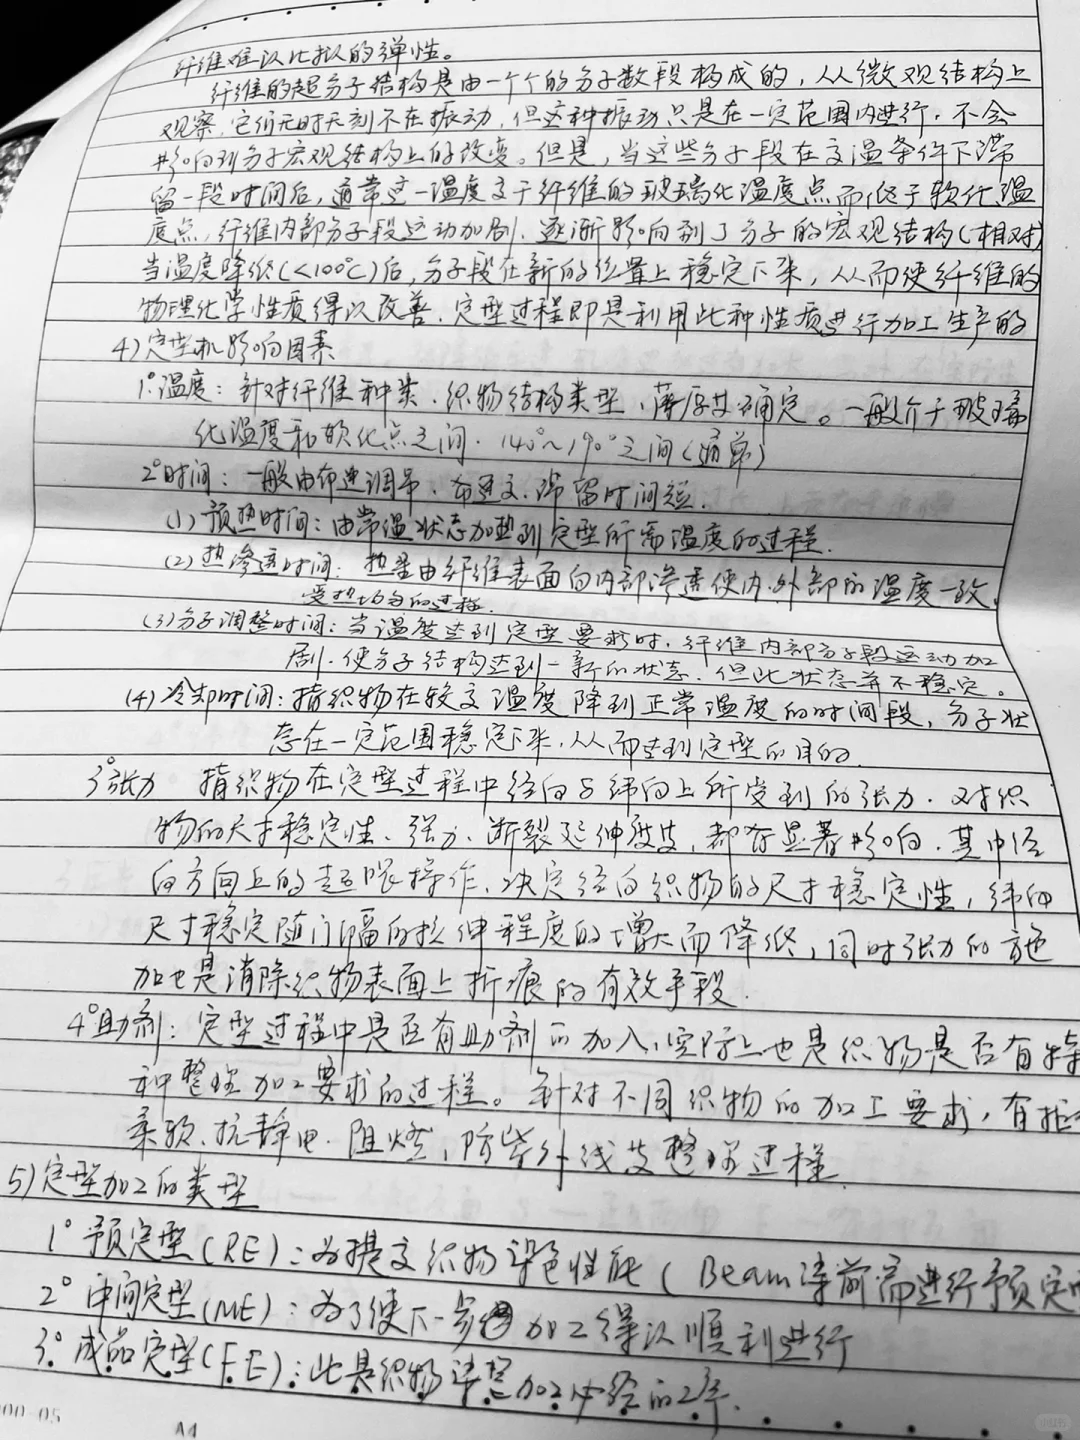 纤维难以比拟的弹性。
纤维的超分子结构是由一个个的分子数段构成的，从微观结构上
观察，它们无时无刻不在振动，但这种振动只是在一定范围内进行，不会
影响到分子宏观结构上的改变。但是，当这些分子段在高温条件下滞
留一段时间后，通常这一温度高于纤维的玻璃化温度点而低于软化温
度点，纤维内部分子段运动加剧，逐渐影响到了分子的宏观结构(相对)
当温度降低(<100℃)后，分子段在新的位置上稳定下来，从而使纤维的
物理化学性质得以改善，定型过程即是利用此种性质进行加工生产的
4)定型机影响因素
1°温度：针对纤维种类、织物结构类型、薄厚等确定。一般介于玻璃
化温度和软化点之间．140°~190°之间(通常)
2°时间：一般由布速调节，布速高，滞留时间短．
(1) 预热时间：由常温状态加热到定型所需温度的过程．
(2) 热渗透时间：热量由纤维表面向内部渗透使内、外部的温度一致，
受热均匀的过程．
(3)分子调整时间：当温度达到定型要求时，纤维内部分子段运动加
剧，使分子结构达到一新的状态，但此状态并不稳定。
(4)冷却时间：指织物在较高温度降到正常温度的时间段，分子状
态在一定范围稳定下来，从而达到定型的目的．
3°张力 指织物在定型过程中经向与纬向上所受到的张力．对织
物的尺寸稳定性、强力、断裂延伸度等，都有显著影响．其中经
向方向上的超喂操作，决定经向织物的尺寸稳定性，纬向
尺寸稳定随门幅的拉伸程度的增大而降低，同时张力的施
加也是消除织物表面上折痕的有效手段．
4°助剂：定型过程中是否有助剂的加入，实际上也是织物是否有特
种整理加工要求的过程。针对不同织物的加工要求，有拒水
柔软、抗静电、阻燃，防紫外线等整理过程．
5)定型加工的类型
1° 预定型(RE)：为提高织物染色性能 ( Beam染前需进行预定
2° 中间定型(ME)：为了使下一步 加工得以顺利进行
3°成品定型(F.E)：此是织物染整加工中 的工序．
00-05
A4